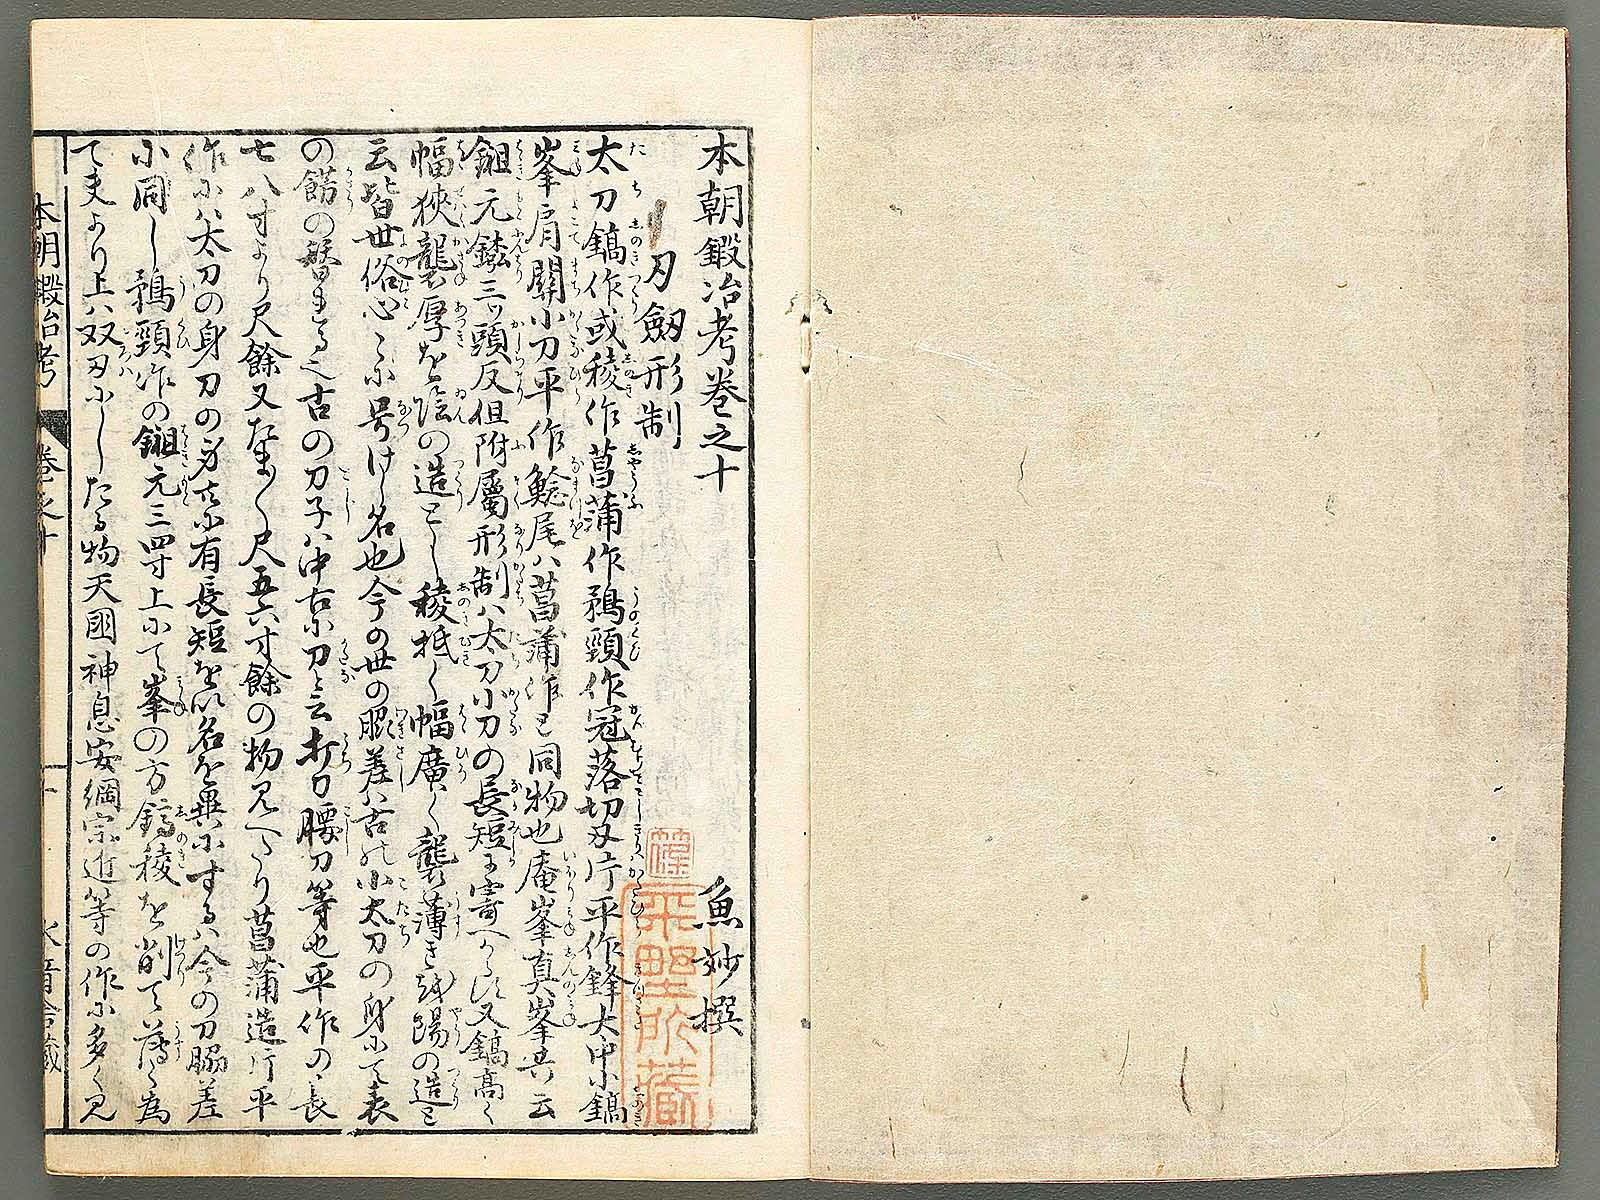 本朝鍛冶考巻之十
魚妙撰
刀劔形制
太刀鎬作或稜作菖蒲作鵜頸作冠落切刄片平作鋒大中小鎬
峯肩關小刀平作鯰尾ハ菖蒲作と同物也庵峯真峯共云
鎺元 三ツ頭反但附属形制ハ太刀小刀の長短 又鎬高く
幅狹 厚を陰の造とし稜抵く幅廣く 薄き 陽の造と
云皆世俗心々に号けし名也今の世の脇差ハ古の小太刀の身にて表
の餝の 也古の刀子ハ中古小刀と云打刀腰刀等也平作の長
七八寸より尺餘又たま〱尺五六寸餘の物見へたり菖蒲造片平
作にハ太刀の身刀の身共に有長短を以名を異にするハ今の刀脇差
小同し鵜頸作の鎺元三四寸上にて峯の方鎬稜を削て薄く為
て夫より上ハ双刃にしたる物天國神息安綱宗近等の作に多く見
本朝鍛冶考
巻之十
一
平野所藏